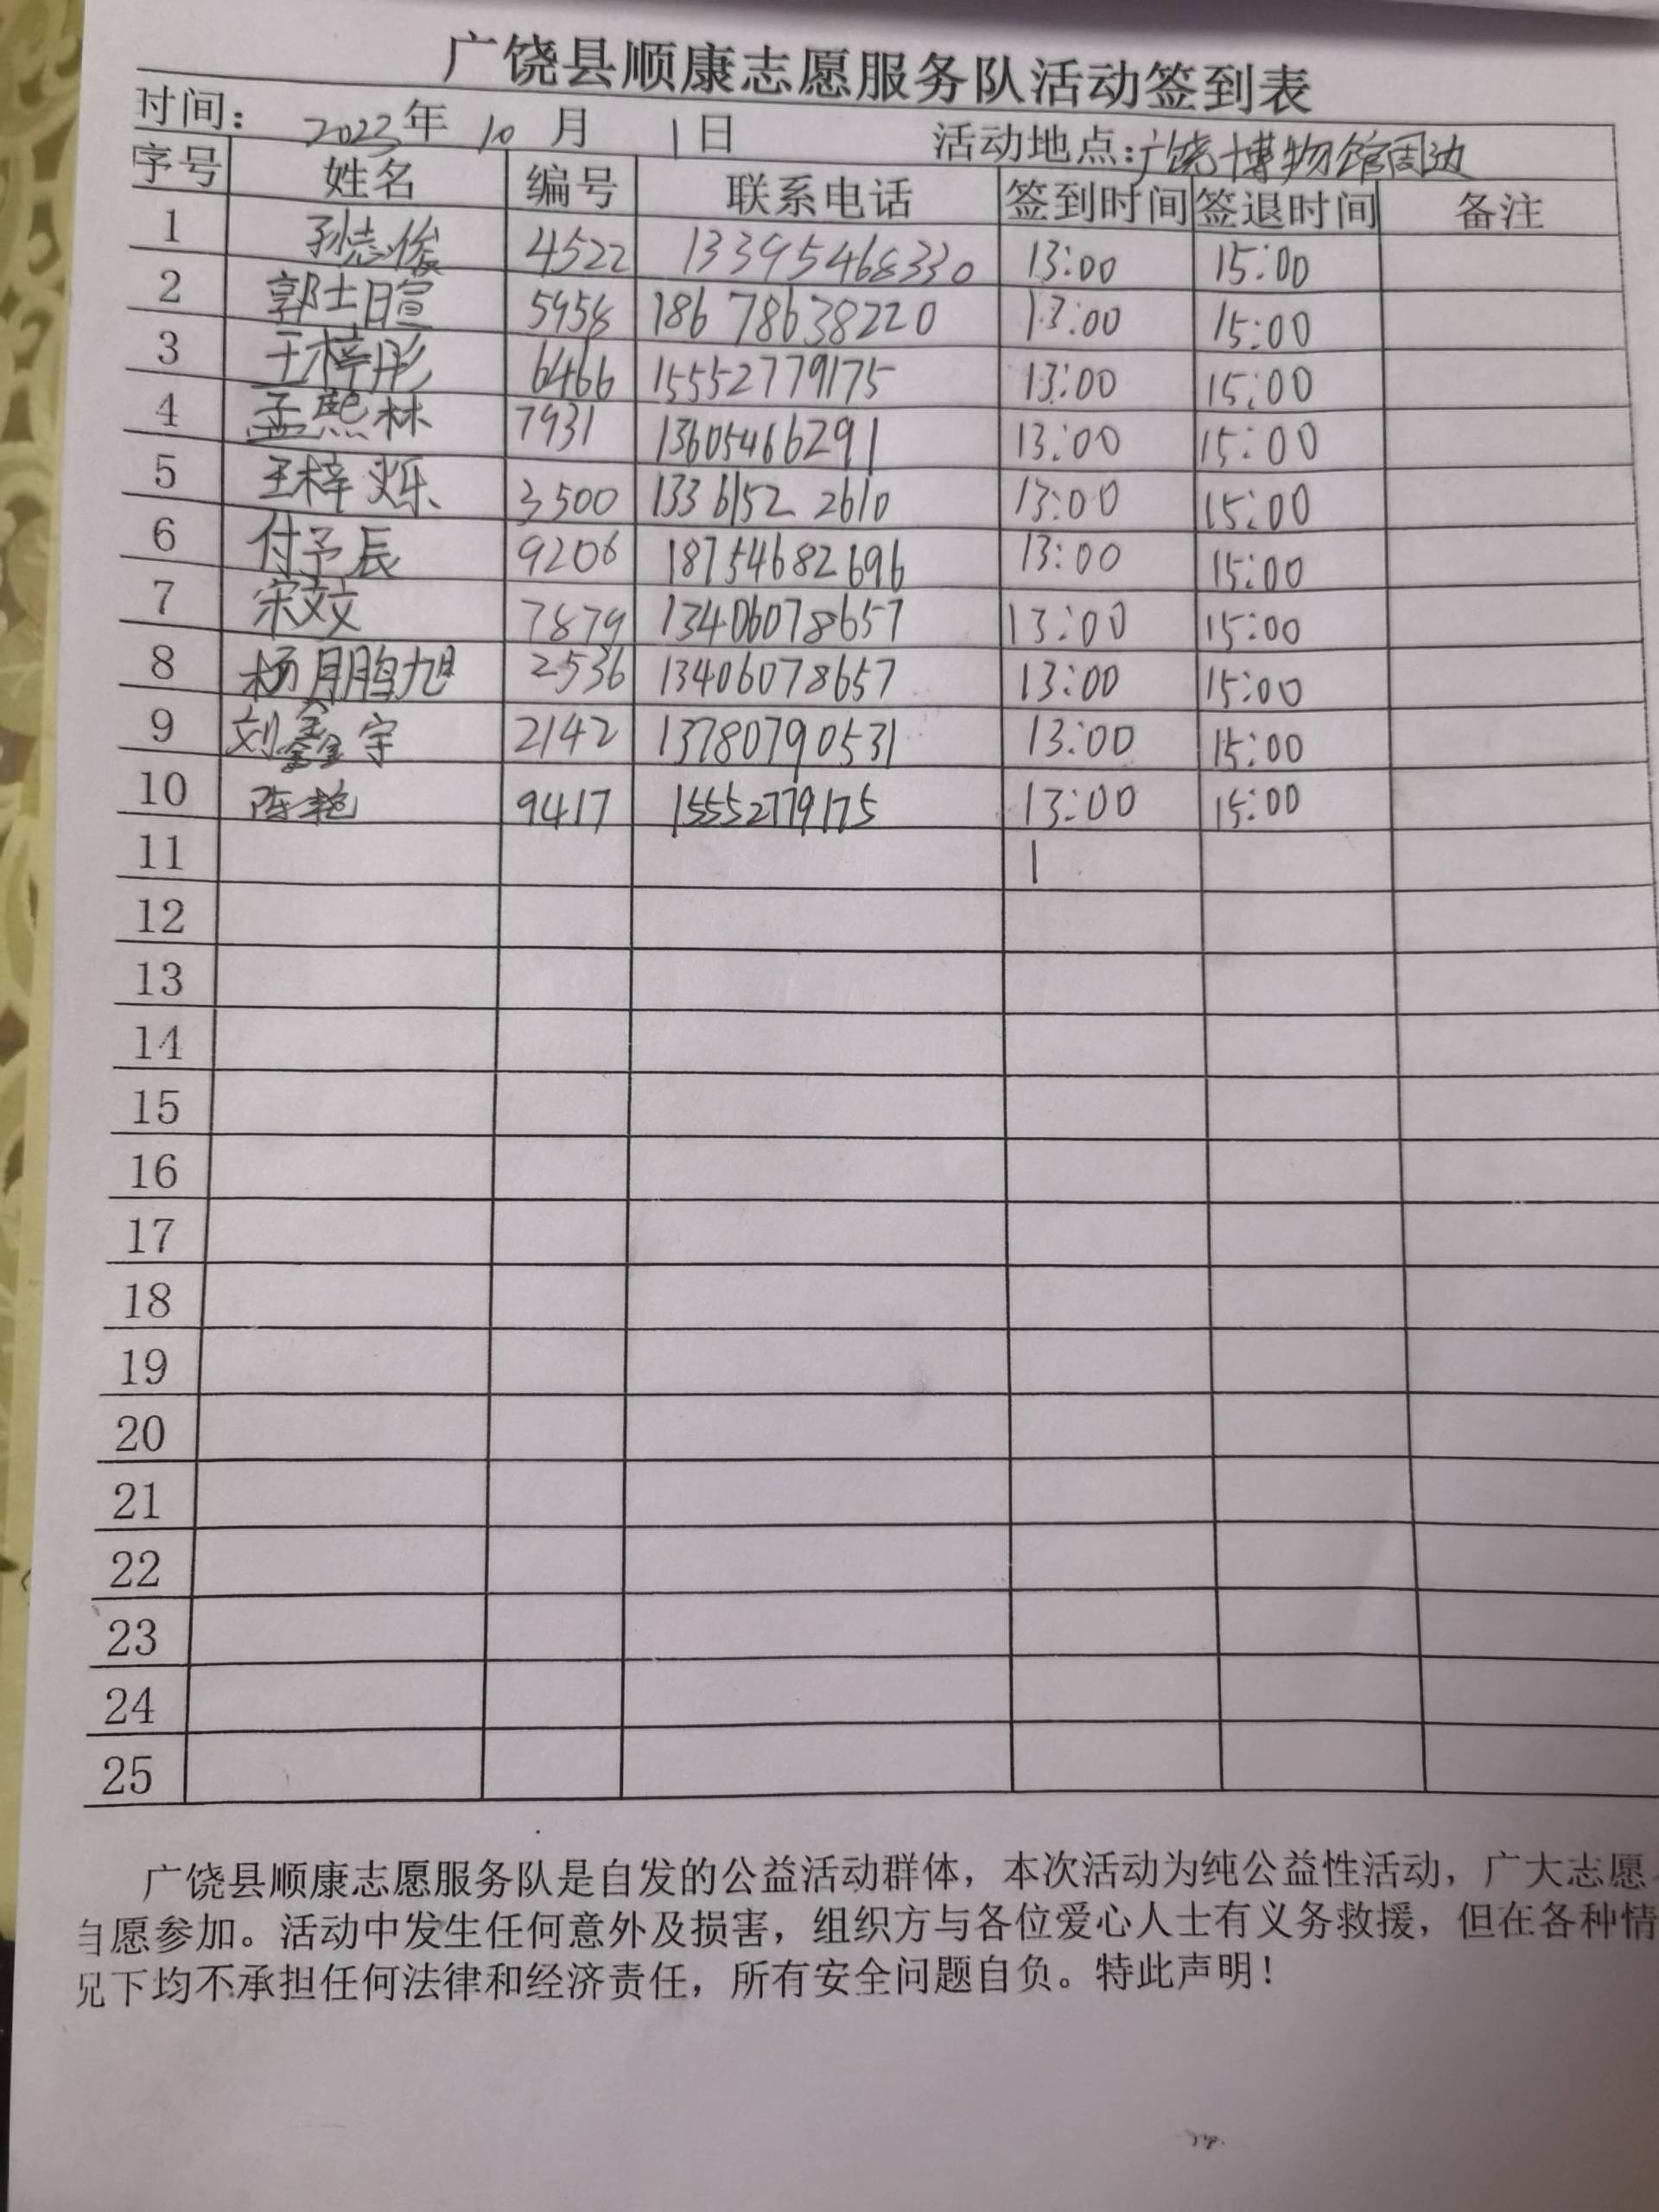 广饶县顺康志愿服务队活动签到表
时间： 2023年 10 月 1日 活动地点：广饶博物馆周边
序号 姓名 编号 联系电话 签到时间 签退时间 备注
1 孙志俊 4522 13395468330 13:00 15:00
2 郭士暄 5958 186 78638220 13:00 15:00
3 王梓彤 6466 15552779175 13:00 15:00
4 孟熙林 7931 13605466291 13:00 15:00
5 王梓烁 3500 133 6152 2610 13:00 15:00
6 付予辰 9206 18754682696 13:00 15:00
7 宋文 7879 13406078657 13:00 15:00
8 杨鹏旭 2536 13406078657 13:00 15:00
9 刘鑫宇 2142 13780790531 13:00 15:00
10 陈艳 9417 15552779175 13:00 15:00
11 1
12
13
14
15
16
17
18
19
20
21
22
23
24
25
广饶县顺康志愿服务队是自发的公益活动群体，本次活动为纯公益性活动，广大志愿
自愿参加。活动中发生任何意外及损害，组织方与各位爱心人士有义务救援，但在各种情
况下均不承担任何法律和经济责任，所有安全问题自负。特此声明！